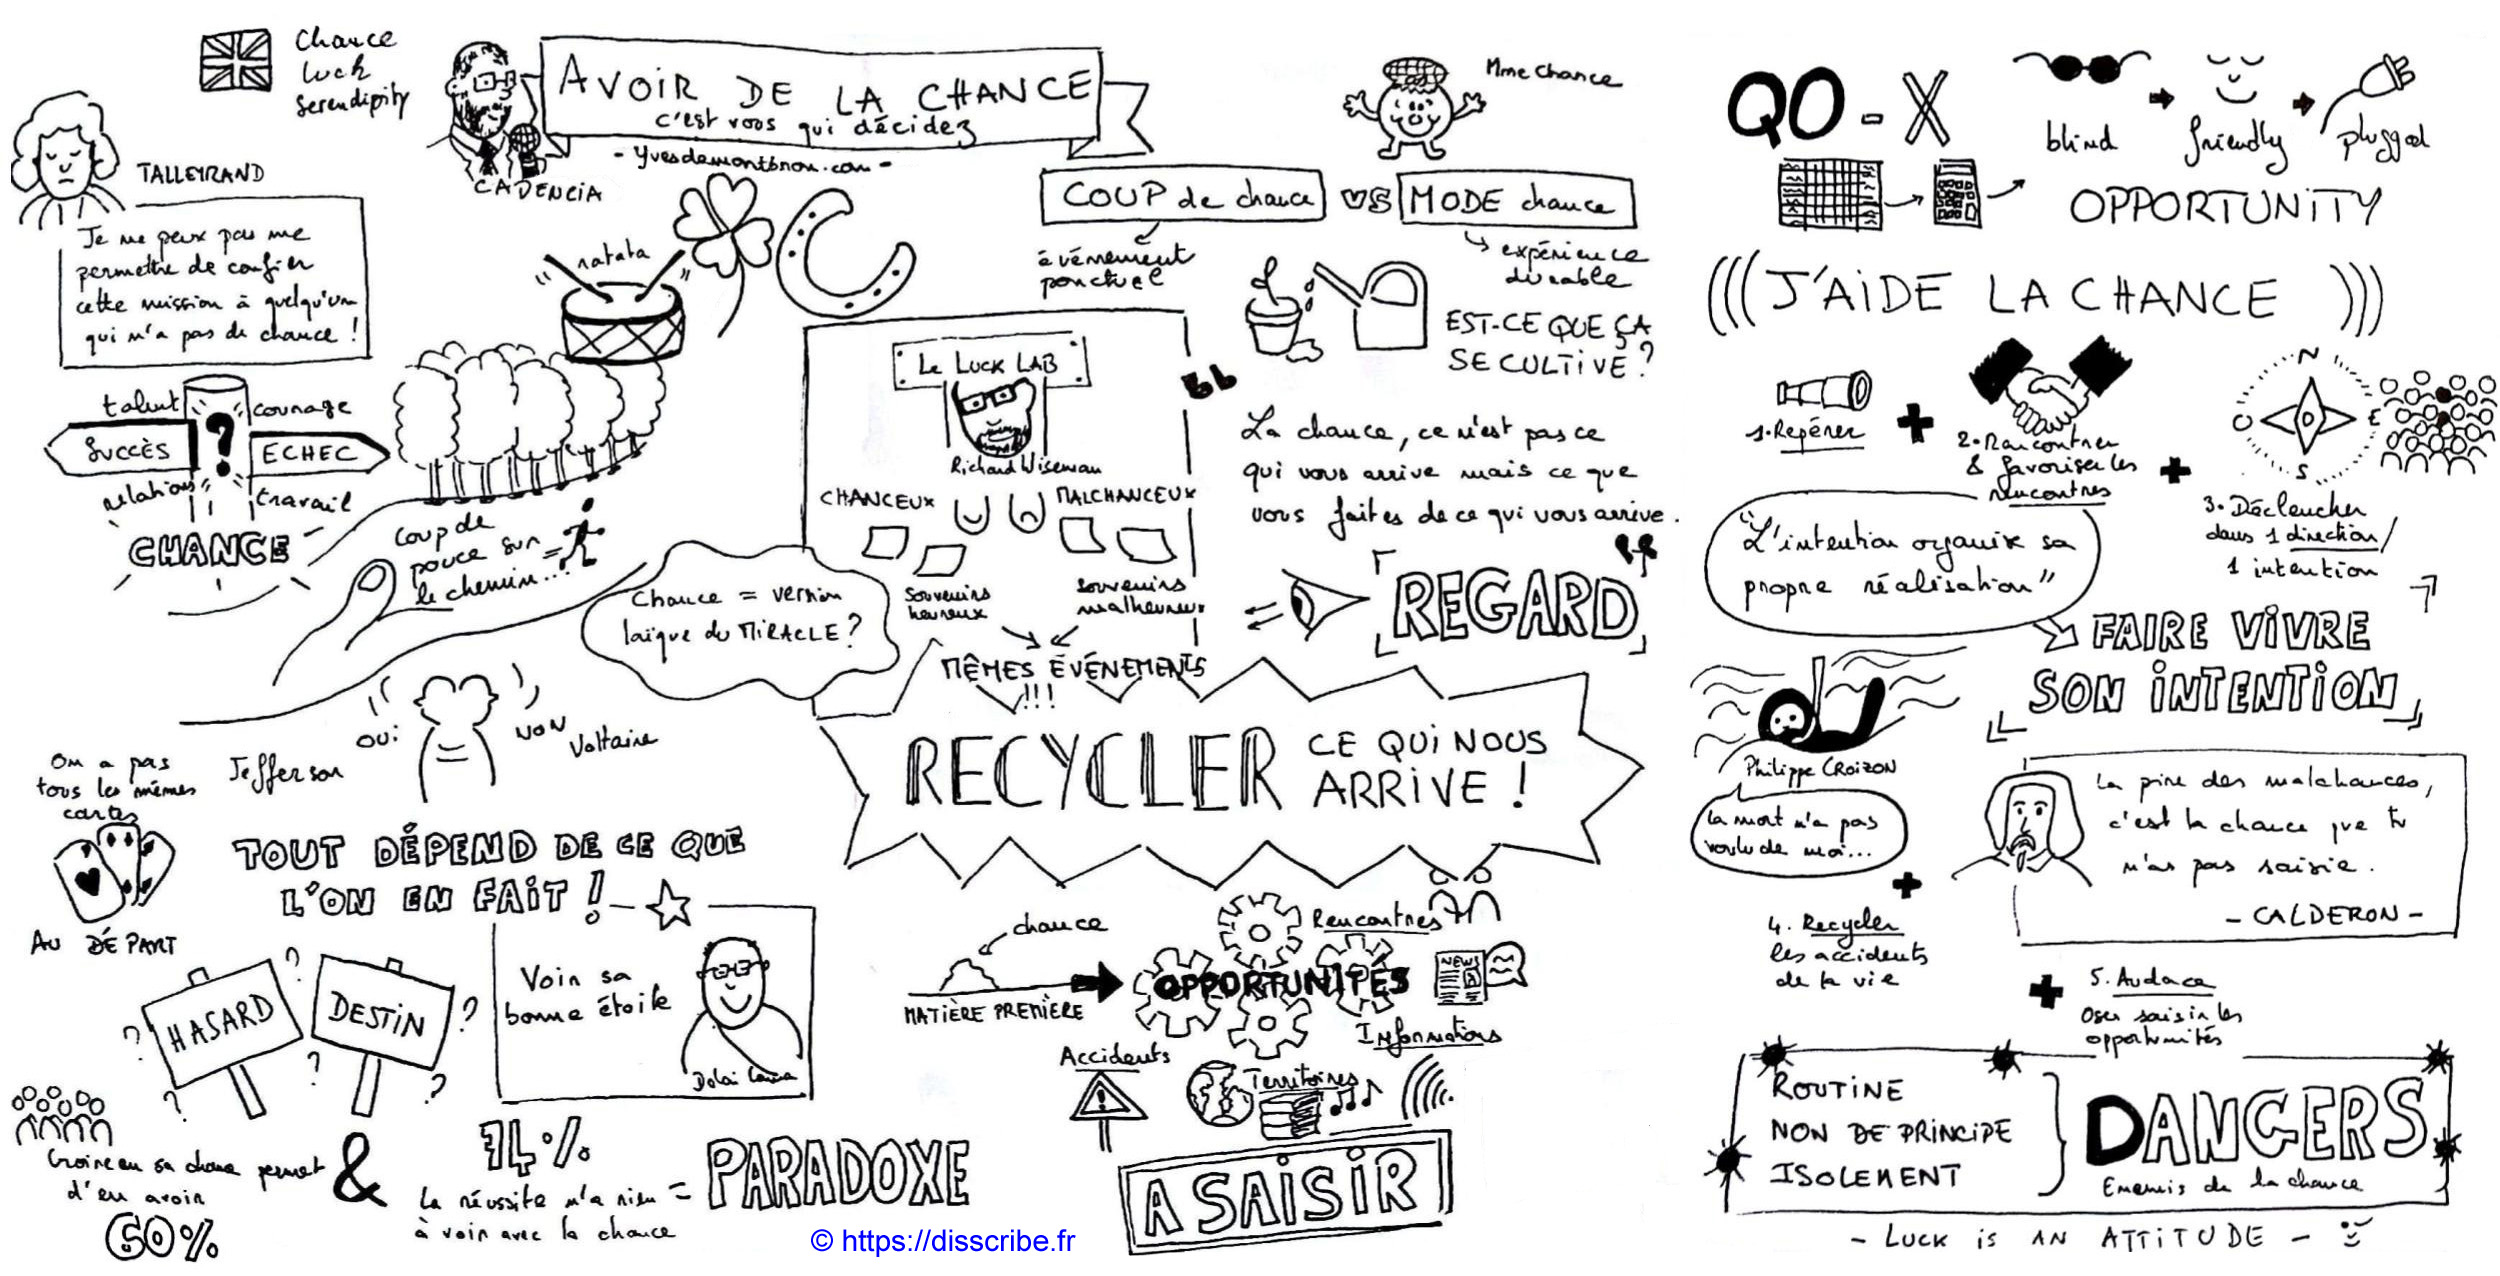 Chance
luck
Serendipity
TALLEYRAND
Je ne peux pas me
permettre de confier
cette mission à quelqu'un
qui n'a pas de chance !
AVOIR DE LA CHANCE
c'est vous qui décidez
- yvesdemontbron.com -
CADENCIA
ratata
talent
courage
SUCCÈS
?
ECHEC
relations
travail
CHANCE
coup de
pouce sur
le chemin...
Chance = version
laïque du MIRACLE ?
Le LUCK LAB
Richard Wiseman
CHANCEUX
MALCHANCEUX
Souvenirs
heureux
souvenirs
malheureux
MÊMES ÉVÉNEMENTS
!!!
Mme Chance
COUP de chance
VS
MODE chance
événement
ponctuel
expérience
durable
EST-CE QUE ÇA
SE CULTIVE ?
La chance, ce n'est pas ce
qui vous arrive mais ce que
vous faites de ce qui vous arrive.
REGARD
RECYCLER CE QUI NOUS
ARRIVE !
OUI
NON
Jefferson
Voltaire
On a pas
tous les mêmes
cartes
AU DÉPART
TOUT DÉPEND DE CE QUE
L'ON EN FAIT !
HASARD
DESTIN
? ? ? ? ? ?
Voir sa
bonne étoile
Dalaï Lama
Croire en sa chance permet
d'en avoir
60%
&
74%
La réussite n'a rien =
à voir avec la chance
PARADOXE
chance
MATIÈRE PREMIÈRE
OPPORTUNITÉS
Rencontres
NEWS
Informations
Accidents
Territoires
A SAISIR
© https://disscribe.fr
QO - X
blind
friendly
plugged
OPPORTUNITY
(((J'AIDE LA CHANCE)))
1. Repérer
+
2. Rencontrer
& favoriser les
rencontres
+
N
O
E
S
3. Déclencher
dans 1 direction/
1 intention
"L'intention organise sa
propre réalisation"
FAIRE VIVRE
SON INTENTION
Philippe CROIZON
La mort n'a pas
voulu de moi...
+
4. Recycler
les accidents
de la vie
La pire des malchances,
c'est la chance que tu
n'as pas saisie.
- CALDERON -
+
5. Audace
Oser saisir les
opportunités
ROUTINE
NON DE PRINCIPE
ISOLEMENT
DANGERS
Ennemis de la chance
- LUCK is AN ATTITUDE -